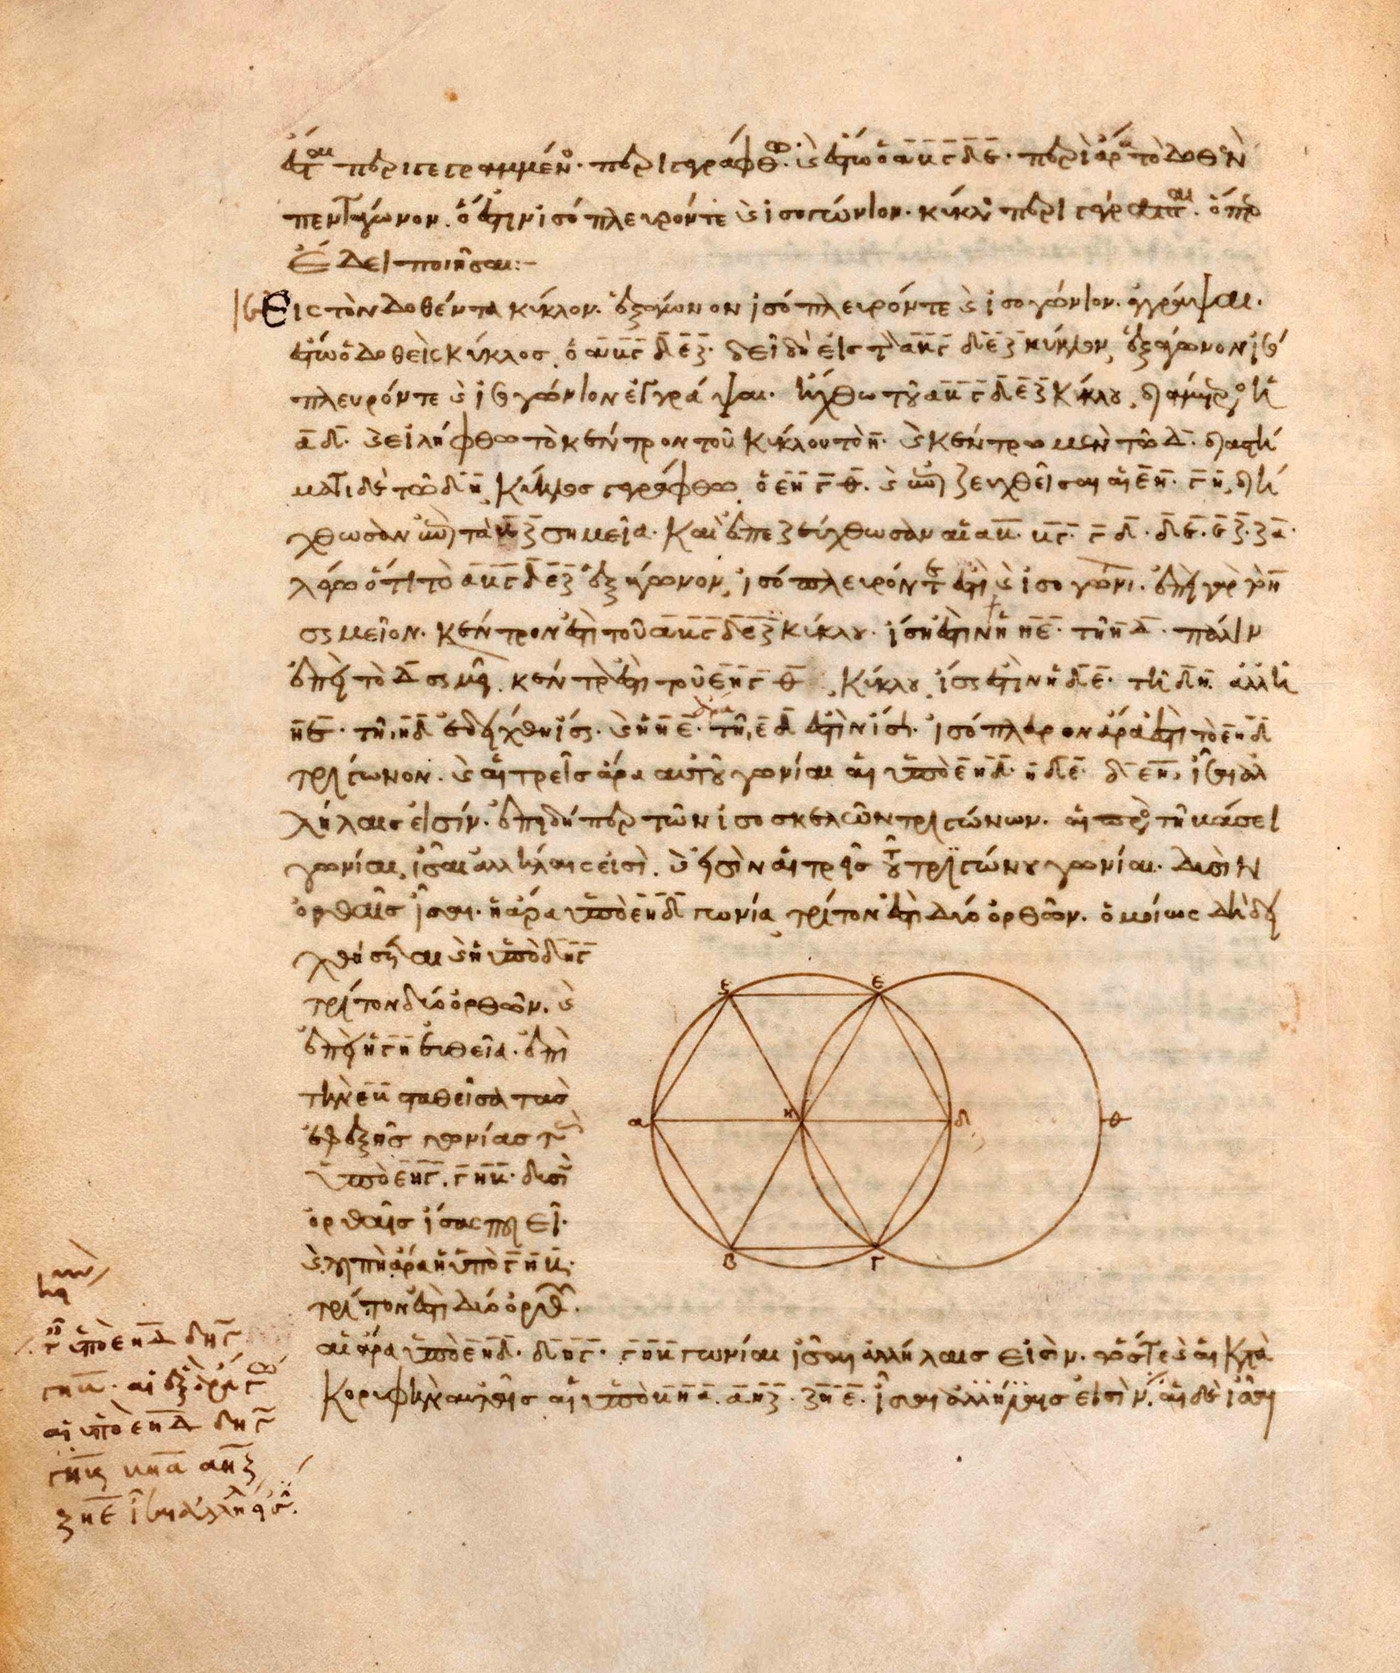 περιγεγραμμένος. περιγεγράφθω. καὶ ἔστω ὁ αβγδε. περὶ ἄρα τὸ δοθὲν
πεντάγωνον. ὅ ἐστιν ἰσόπλευρόν τε καὶ ἰσογώνιον. κύκλος περιγέγραπται. ὅπερ
ἔδει ποιῆσαι:-
Εἰς τὸν δοθέντα κύκλον. ἑξάγωνον ἰσόπλευρόν τε καὶ ἰσογώνιον. ἐγγράψαι.
ἔστω ὁ δοθεὶς κύκλος ὁ αβγδεζ. δεῖ δὴ εἰς τὸν αβγδεζ κύκλον ἑξάγωνον ἰσό
πλευρόν τε καὶ ἰσογώνιον ἐγγράψαι. ἤχθω τοῦ αβγδεζ κύκλου διάμετρος ἡ
αδ. καὶ εἰλήφθω τὸ κέντρον τοῦ κύκλου τὸ η. καὶ κέντρω μὲν τῶ δ. διαστή
ματι δὲ τῶ δη κύκλος γεγράφθω ὁ εηγθ. καὶ ἐπιζευχθεῖσαι αἱ εη. γη διή
χθωσαν ἐπὶ τὰ βζ σημεῖα. καὶ ἐπεζεύχθωσαν αἱ αβ. βγ. γδ. δε. εζ. ζα.
λέγω ὅτι τὸ αβγδεζ ἑξάγωνον ἰσόπλευρόν τέ ἐστι καὶ ἰσογώνιον. ἐπεὶ γὰρ τὸ η
σημεῖον. κέντρον ἐστὶ τοῦ αβγδεζ κύκλου. ἴση ἐστὶν ἡ ηε. τῆ ηδ. πάλιν
ἐπεὶ τὸ δ σημεῖον κέντρον ἐστὶ τοῦ εηγθ κύκλου ἴση ἐστὶν ἡ δε. τῆ δη. ἀλλ ἡ
ηε. τῆ ηδ ἐδείχθη ἴση. καὶ ἡ ηε. ἄρα τῆ εδ ἐστὶν ἴση. ἰσόπλευρον ἄρα ἐστὶ τὸ εηδ
τρίγωνον. καὶ αἱ τρεῖς ἄρα αὐτοῦ γωνίαι αἱ ὑπὸ εηδ. ηδε. δεη. ἴσαι ἀλ
λήλαις εἰσίν. ἐπειδήπερ τῶν ἰσοσκελῶν τριγώνων. αἱ πρὸς τῆ βάσει
γωνίαι ἴσαι ἀλλήλαις εἰσὶ. καὶ εἰσὶν αἱ τρεῖς τοῦ τριγώνου γωνίαι. δυσὶν
ὀρθαῖς ἴσαι. ἡ ἄρα ὑπὸ εηδ γωνία τρίτον ἐστὶ δύο ὀρθῶν. ὁμοίως δὴ δει
χθήσεται καὶ ἡ ὑπὸ δηγ
τρίτον δύο ὀρθῶν. καὶ
ἐπεὶ ἡ γη εὐθεῖα. ἐπὶ
τὴν εβ σταθεῖσα τὰς
ἐφεξῆς γωνίας τὰς
ὑπὸ εηγ. γηβ. δυσὶν
ὀρθαῖς ἴσας ποιεῖ.
καὶ λοιπὴ ἄρα ἡ ὑπὸ γηβ.
τρίτον ἐστὶ δύο ὀρθῶν.
αἱ ἄρα ὑπὸ εηδ. δηγ. γηβ γωνίαι ἴσαι ἀλλήλαις εἰσὶν. ὥστε καὶ αἱ κατὰ
κορυφὴν αὐταῖς αἱ ὑπὸ βηα. αηζ. ζηε. ἴσαι ἀλλήλαις εἰσὶν. αἱ δὲ ἴσαι
ζ ε
α η δ θ
β γ
ὑπὸ εηδ δηγ
γηβ. αἱ ἓξ ἄρα
αἱ ὑπὸ εηδ δηγ
γηβ βηα αηζ
ζηε ἴσαι ἀλλήλαις εἰσί.